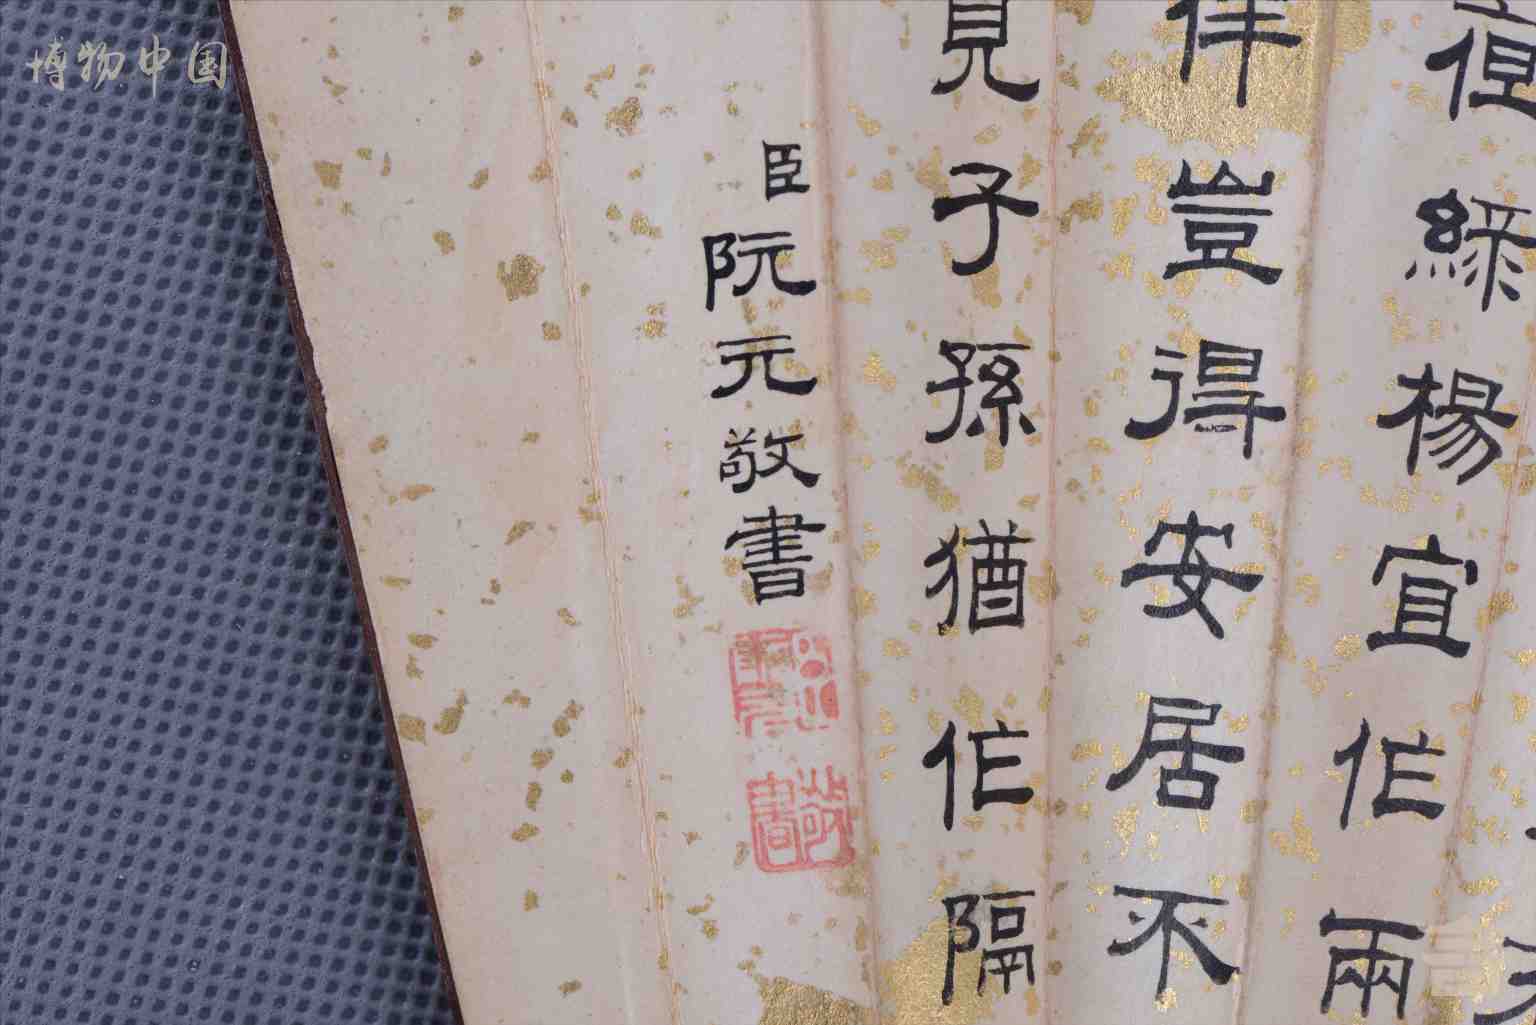 博物中国
綠楊宜作兩
豈得安居不
見子孫猶作隔
臣阮元敬書
敬書